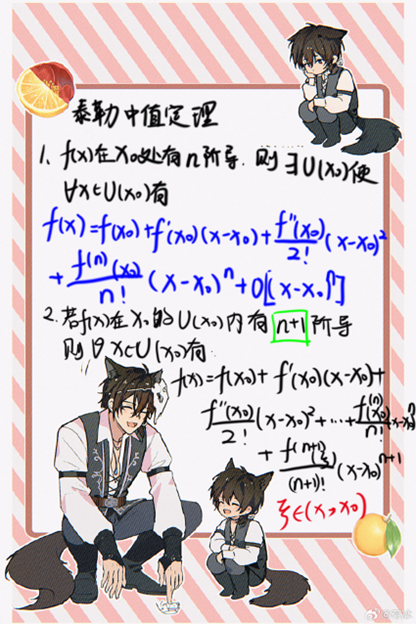 泰勒中值定理
1. f(x)在x₀处有n阶导. 则∃U(x₀)使
∀x∈U(x₀)有
f(x)=f(x₀)+f'(x₀)(x-x₀)+f''(x₀)/2!(x-x₀)²
+f⁽ⁿ⁾(x₀)/n!(x-x₀)ⁿ+o[(x-x₀)ⁿ]
2. 若f(x)在x₀的U(x₀)内有n+1阶导
则∀x∈U(x₀)有
f(x)=f(x₀)+f'(x₀)(x-x₀)+
f''(x₀)/2!(x-x₀)²+…+f⁽ⁿ⁾(x₀)/n!(x-x₀)ⁿ
+f⁽ⁿ⁺¹⁾(ξ)/(n+1)!(x-x₀)ⁿ⁺¹
ξ∈(x,x₀)